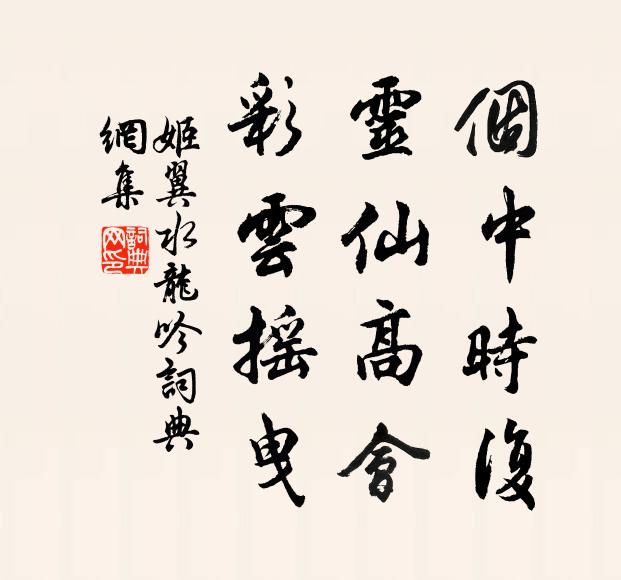 個中時復
靈仙高會
彩雲搖曳
姬翼水龍吟詞典
網集
詞典
网印